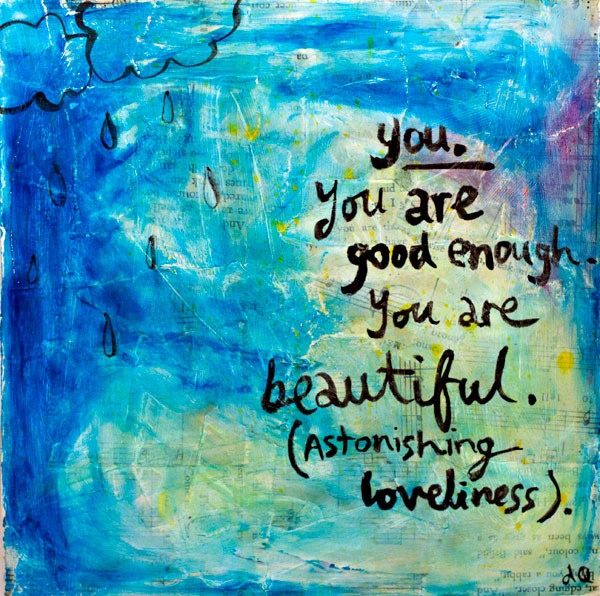 you.
You are
good enough.
You are
beautiful.
(Astonishing
loveliness).